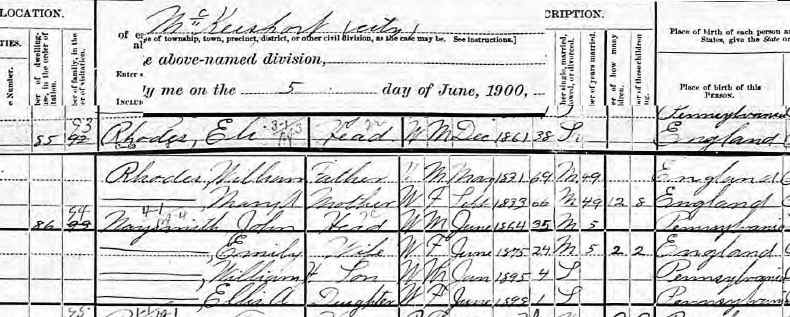 LOCATION.
McKeesport (city)
CRIPTION.
of township, town, precinct, district, or other civil division, as the case may be. See instructions.]
e above-named division,
y me on the 5 day of June, 1900,
Enter
INCLUD
TIES.
e Number.
ber of dwelling-
in the order of
tation.
ber of family, in the
er of visitation.
her single, married,
dowed, or divorced.
ber of years married.
er of how many
ldren.
er of these children
ng.
Place of birth of each person an
States, give the State or
Place of birth of this
PERSON.
Pennsylvania
85 93 92 Rhodes, Eli Head W M Dec 1861 38 S England
Rhodes, William Father W M May 1831 69 M 49 England
——, Mary A Mother W F Sept 1833 66 M 49 12 8 England
86 94 Naysmith John Head W M June 1864 35 M 5 Pennsylvania
——, Emily Wife W F June 1875 24 M 5 2 2 England
——, William H Son W M Jan 1895 4 S Pennsylvania
——, Ellis A Daughter W F June 1898 1 S Pennsylvania
95